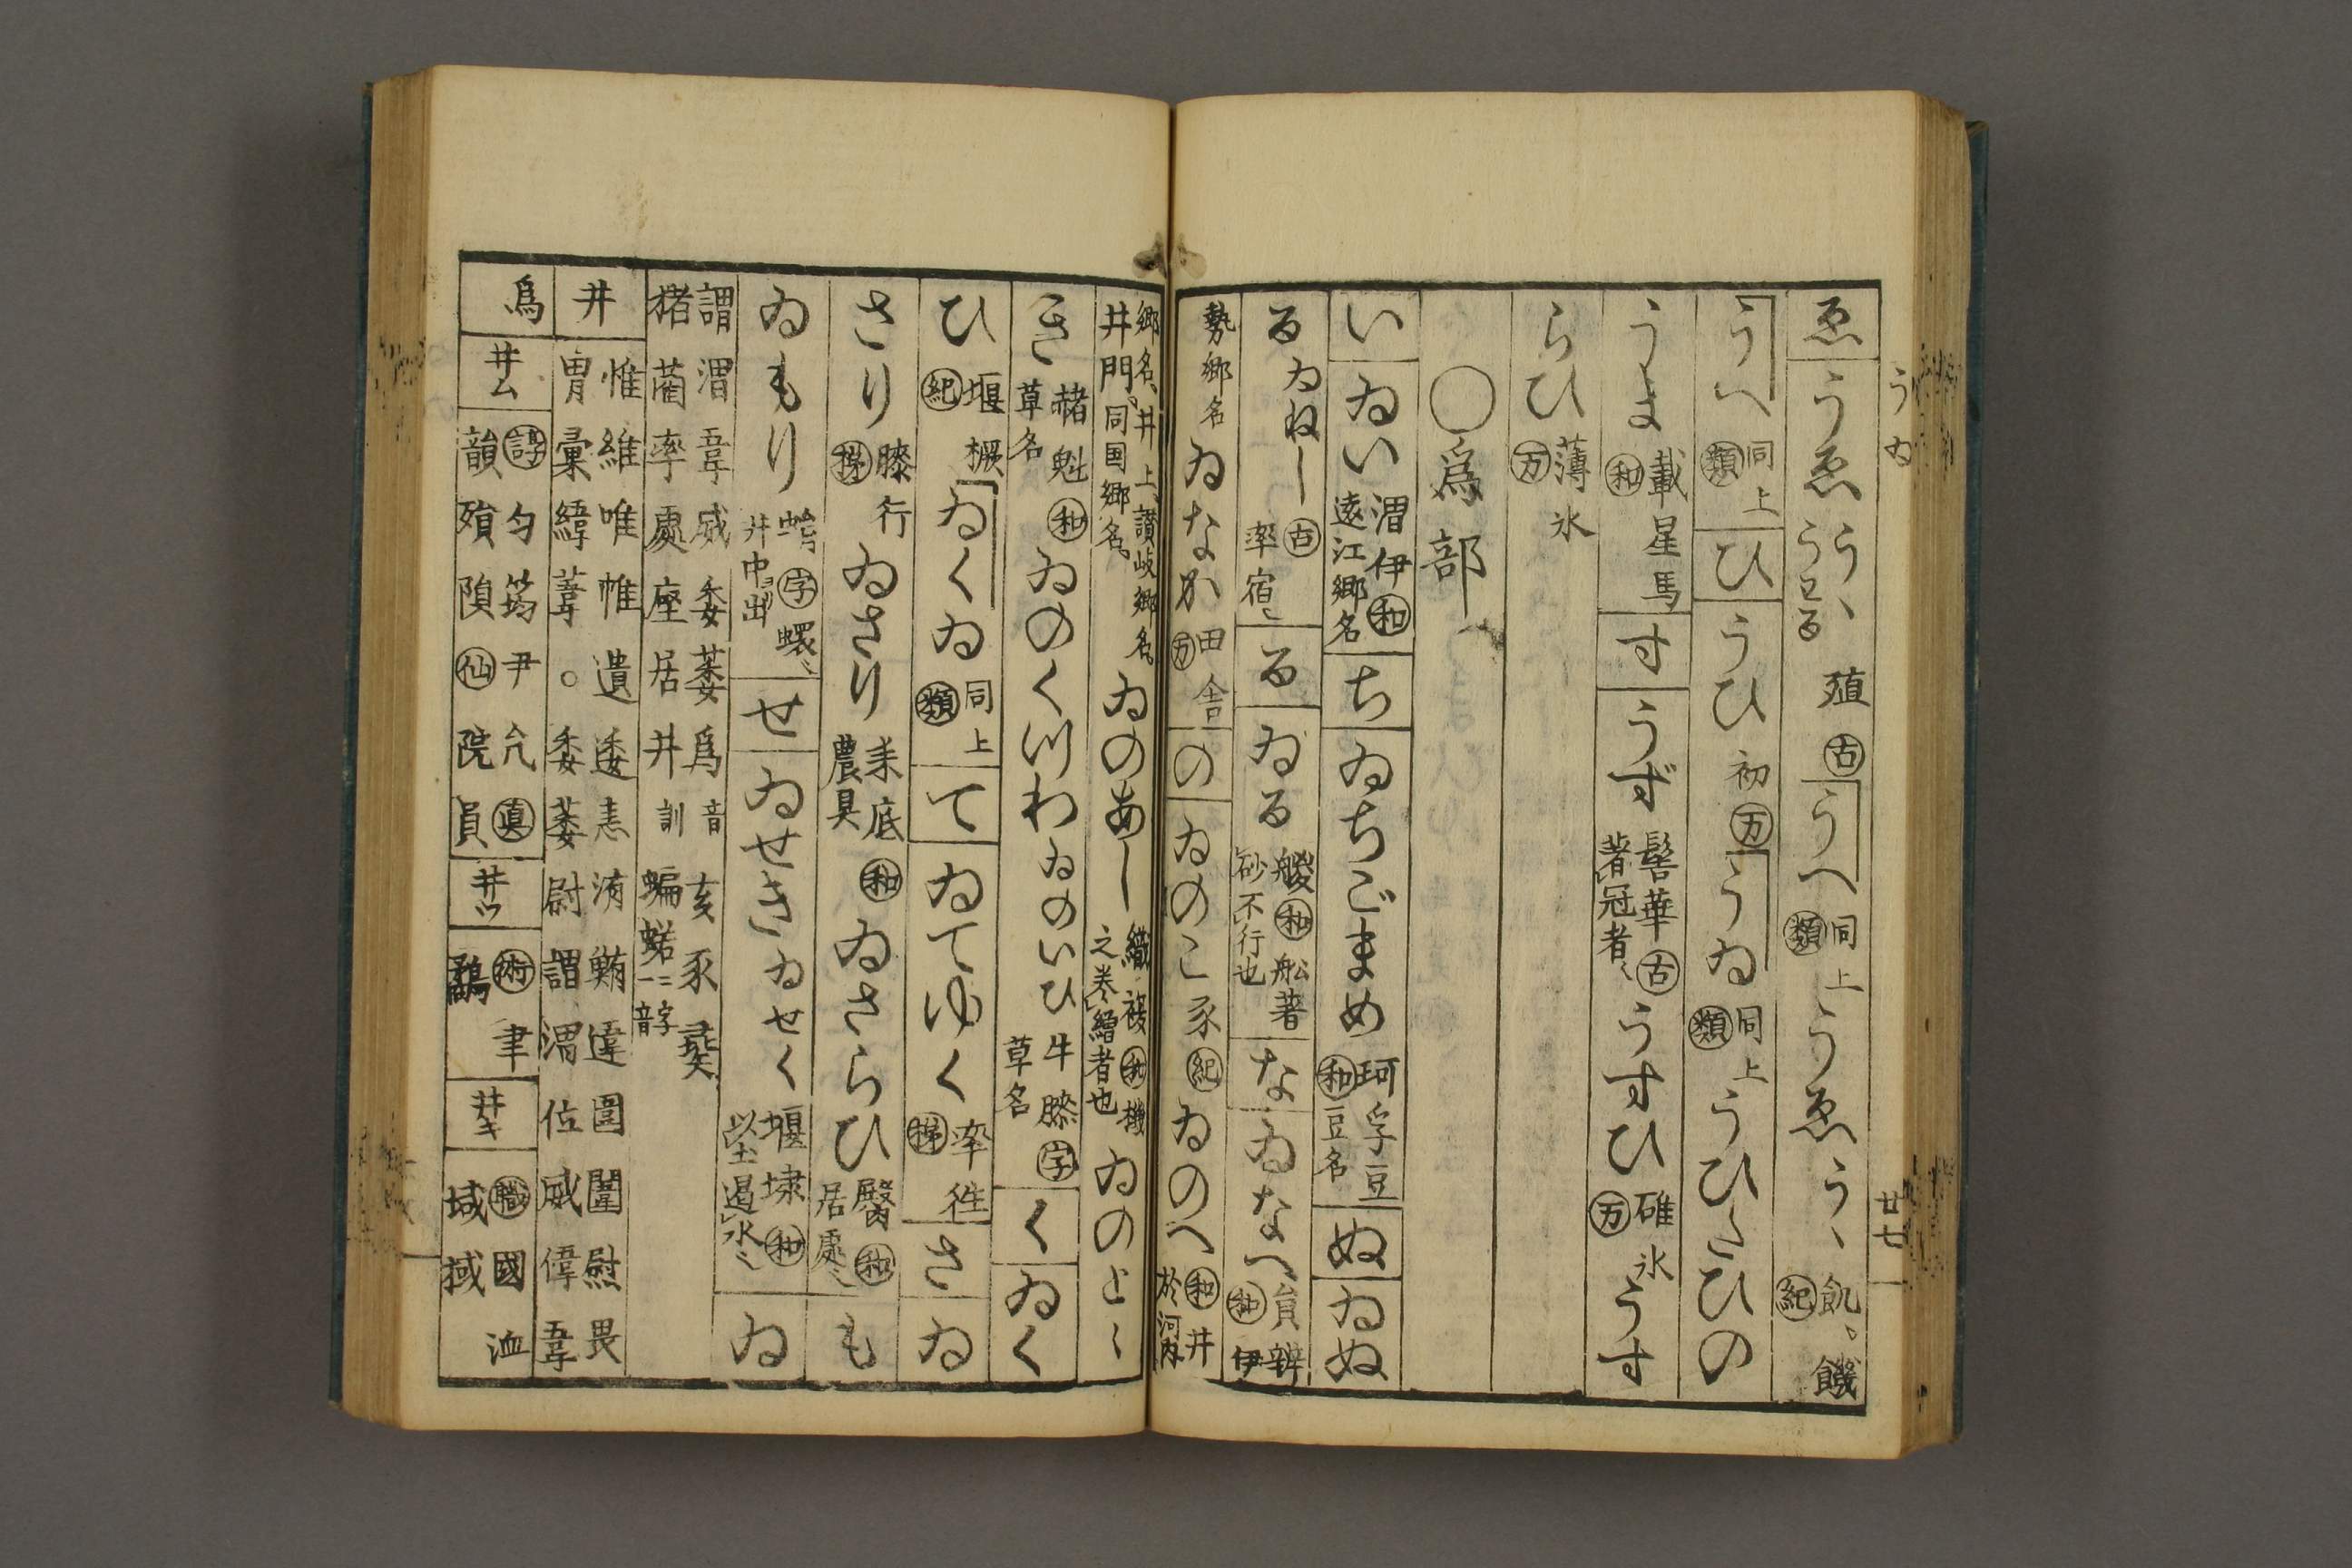 うゐ
廿七
ゑ うゑ うゝ うゑる 殖 古 うへ 同上 類 うゑ うゝ 飢。饑 紀
うへ 同上 類 ひ うひ 初 万 うゐ 同上 類 うひ〳〵 うひの
うま 載星馬 和 す うず 髻華 古 著冠者〻 うすひ 碓氷 万 うす
らひ 薄氷 万
○爲部
い ゐい 渭伊 和 遠江郷名 ち ゐちごまめ 珂孚豆 和 豆名 ぬ ゐぬ
る ゐねし 古 率宿〻 る ゐる 艐 和 船著砂不行也 な ゐなへ 員辨 和 伊
勢郷名 ゐなか 田舎 万 の ゐのこ 豕 紀 ゐのへ 和 井於河内
郷名、井上、讃岐郷名。井門。同国郷名。 ゐのあし 織複 和 機之巻繒者也 ゐのとゝ
き 赭魁 和 草名 ゐのくつわ ゐのいひ 牛膝 字 草名 く ゐく
ひ 堰橛 紀 ゐくゐ 同上 類 て ゐてゆく 率徃 さ ゐ
さり 膝行 ゐさり 耒底 和 農具 ゐさらひ 臋 和 居處〻 も
ゐもり 字 井中出 せ ゐせき ゐせく 堰埭 和 以土遏水〻 ゐ
謂渭韋威委萎爲 音 猪藺率處座居井 訓 亥豕 蝙 二字音
井 惟維唯帷遺逶恚洧鮪違圍闈慰畏 胃彙緯葦。委萎尉謂渭位威偉韋
爲 井ム 諄 匀筠尹允 眞 韻殞隕 仙 院員 井ツ 術 聿鷸 井キ 職 國洫域棫